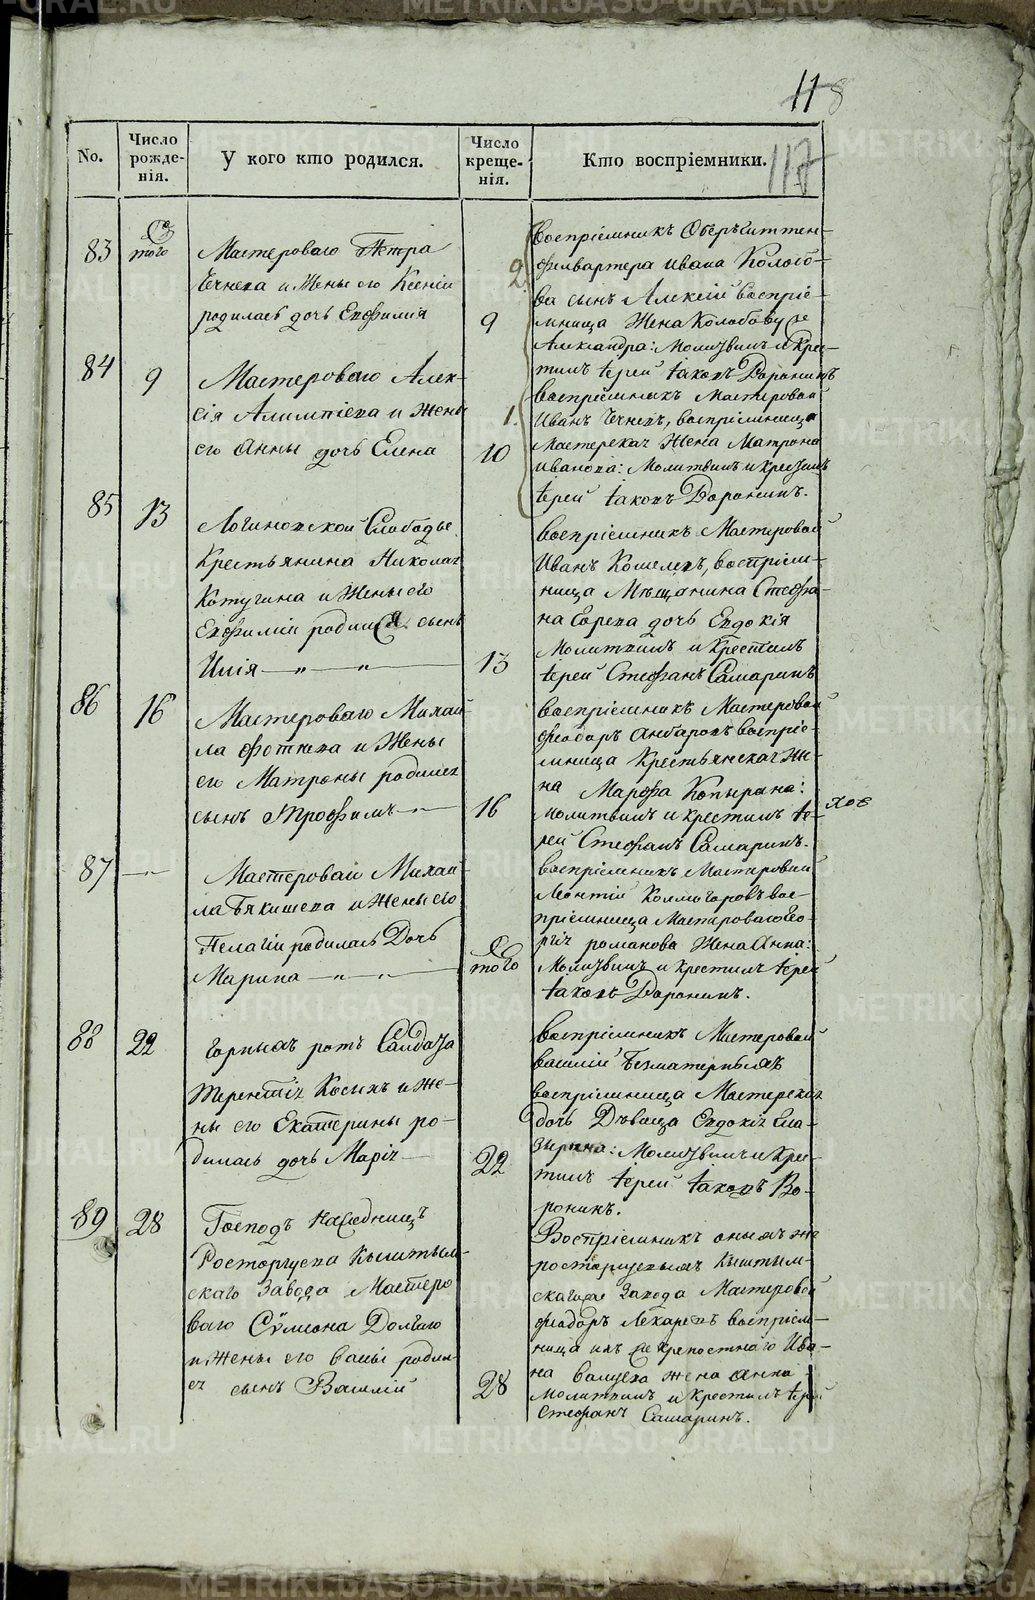 118
117
No.
Число рожде-нія.
У кого кто родился.
Число креще-нія.
Кто воспріемники.
83
того
Мастероваго Петра
Чечнева и Жены его Ксеніи
родилась дочь Евфимія
9
Воспріемникъ Оберъгиттен-
фервартера Ивана Колобо-
ва сынъ Алексій воспріе-
мница Жена Колобову же
Александра: Молитвилъ и Крес-
тилъ Іерей Іаковъ Воронинъ
2
84
9
Мастероваго Алек-
сія Алимпіева и Жены
его Анны дочь Елена
10
воспріемникъ Мастеровой
Иванъ Чечневъ, воспріемница
Мастерская Жена Матрона
Иванова: Молитвилъ и крестилъ
Іерей Іаковъ Воронинъ.
1.
85
13
Логиновской Слободы
Крестьянина Николая
Котугина и Жены его
Евфиміи родился сынъ
Илія — „ — „ —
13
воспріемникъ Мастеровой
Иванъ Кошелевъ, воспріем-
ница Мѣщанина Стефа-
на дочь Евдокія
Молитвилъ и Крестилъ
Іерей Стефанъ Самаринъ
86
16
Мастероваго Михай-
ла Фотиева и Жены
его Матроны родился
сынъ Трофимъ — „ —
16
воспріемникъ Мастеровой
Феодоръ Анбаровъ воспріе-
мница Крестьянская Же-
на Марфа Копырина:
молитвилъ и крестилъ Іе-
рей Стефанъ Самаринъ.
87
— „ —
Мастеровай Михай-
ла Бякишева и Жены его
Пелагіи родилась Дочь
Марина — „ — „ —
того
воспріемникъ Мастеровой
Леонтій Колмогоровъ вос-
пріемница Мастероваго Гео-
ргія романова Жена Анна:
Молитвилъ и крестилъ Іерей
Іаковъ Воронинъ.
88
22
Горныхъ ротъ Салдата
Терентія Косыхъ и Же-
ны его Екатерины ро-
дилась дочь Марія —
22
Воспріемникъ Мастеровой
василій Безматерныхъ
воспріемница Мастерская
дочь Дѣвица Евдокія Гла-
зырина: Молитвилъ и Крес-
тилъ Іерей Іаковъ Во-
ронинъ.
89
28
Господъ наследницъ
Росторгуева Кыштым-
скаго Завода Мастеро
ваго Сѵмеона Долгаго
и Жены его родил-
ся сынъ Василій
28
Воспріемникъ оныхъ же
росторгуевыхъ Кыштым-
скагоже Завода Мастеровой
Феодоръ Лекаревъ воспріем-
ница ихъ же крепостнаго Ива-
на жена Анна
Молитвилъ и Крестилъ Іерей
Стефанъ Самаринъ.
METRIKI.GASO-URAL.RU